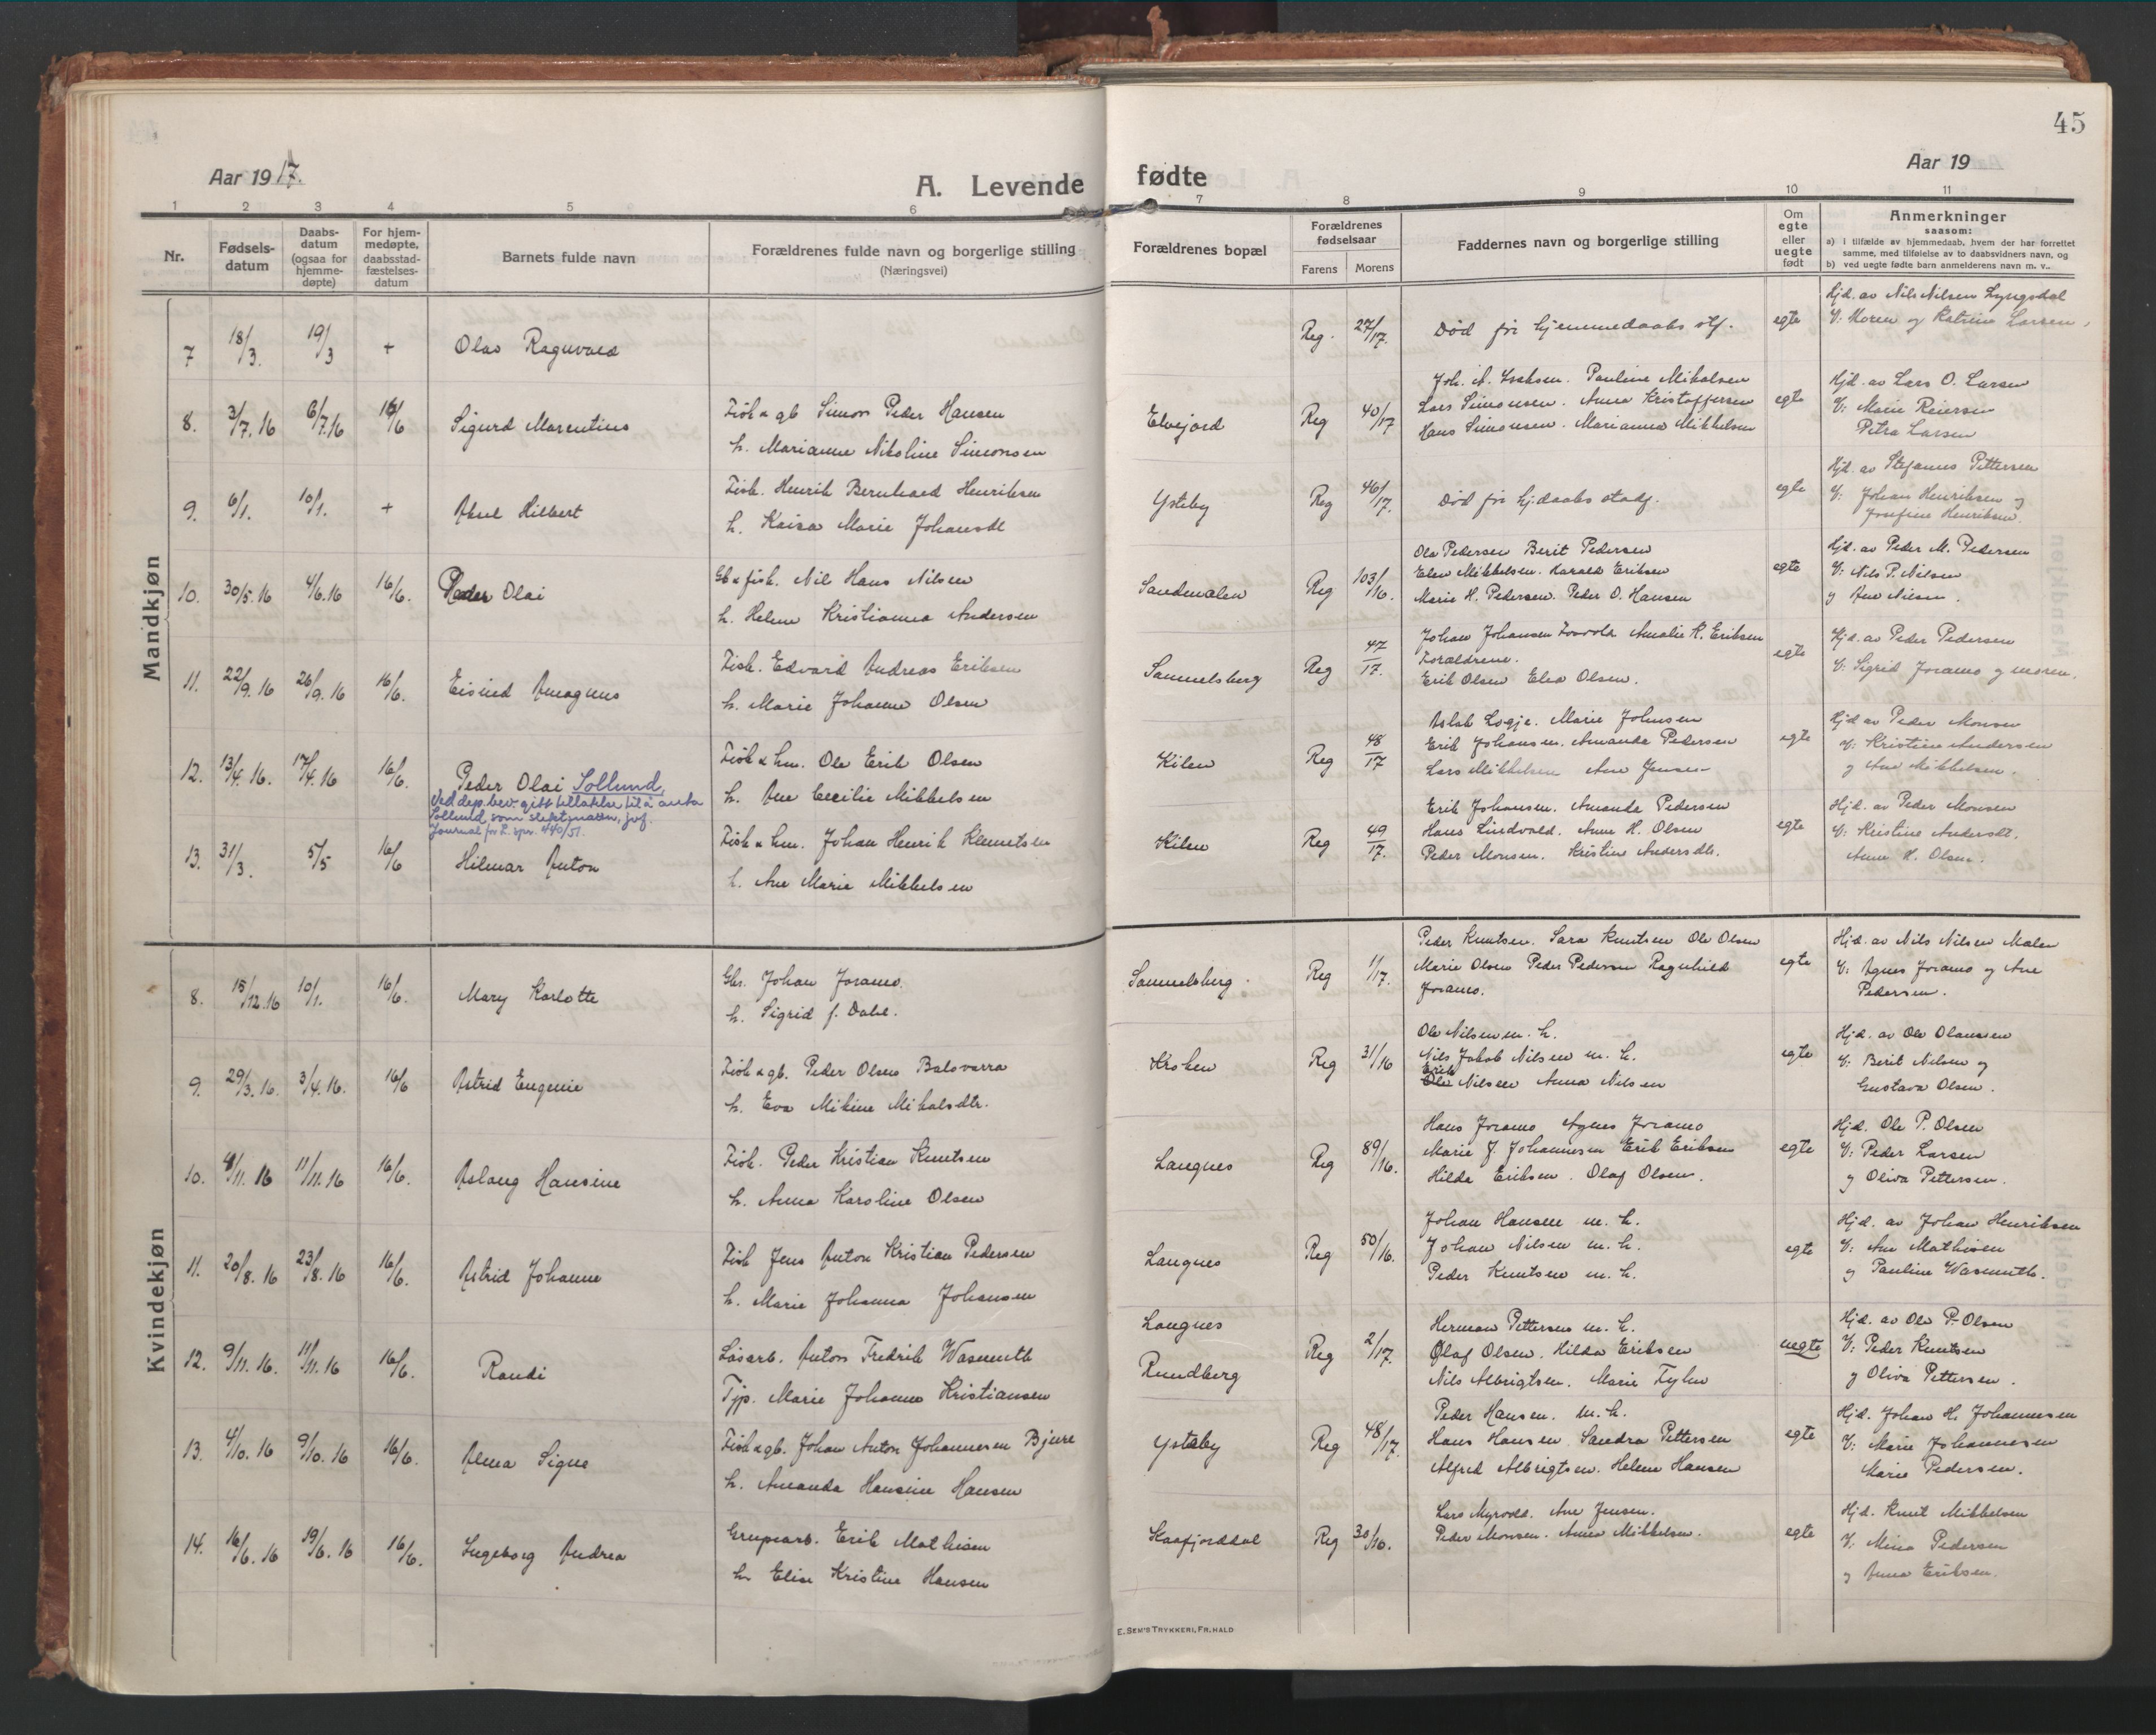 45
Aar 1917.
A. Levende fødte
Aar 19
1 2 3 4 5 6 7 8 9 10 11
Nr.
Fødsels-
datum
Daabs-
datum
(ogsaa for
hjemme-
døpte)
For hjem-
medøpte,
daabsstad-
fæstelses-
datum
Barnets fulde navn
Forældrenes fulde navn og borgerlige stilling
(Næringsvei)
Forældrenes bopæl
Forældrenes
fødselsaar
Farens Morens
Faddernes navn og borgerlige stilling
Om
egte
eller
uegte
født
Anmerkninger
saasom:
a) i tilfælde av hjemmedaab, hvem der har forrettet
samme, med tilføielse av to daabsvidners navn, og
b) ved uegte fødte barn anmelderens navn m. v..
Mandkjøn
7 18/3. 19/3 + Olav Ragnvald
Reg. 27/17.
Død før hjemmedaabs stf.
egte
Hjd. av Nils Nilsen Lyngsdal
V: Moren og Katrine Larsen.
8. 3/7. 16 6/7.16 16/6 Sigurd Marentius
Fisk & gb Simon Peder Hansen
h. Marianne Nikoline Simonsen
Elvejord Reg 40/17
Joh. A. Isaksen. Pauline Mikalsen
Lars Simonsen. Anna Kristoffersen
Hans Simonsen. Marianna Mikkelsen
egte
Hjd. av Lars O. Larsen
V: Marie Reiersen
Petra Larsen
9. 6/1. 10/1. + Aksel Hilbert
Fisk. Henrik Bernhard Henriksen
h. Kaisa Marie Johansdt
Ysteby Reg 46/17.
Død før hjdaabs stadf.
egte
Hjd. av Stefanus Pettersen
V: Johan Henriksen og
Josefine Henriksen.
10. 30/5.16 4/6.16 16/6. Peder Olai
Gb & fisk. Nil Hans Nilsen
h. Helene Kristianna Andersen
Sandmalen Reg 103/16.
Ole Pedersen Berit Pedersen
Elen Mikkelsen. Harald Eriksen
Marie H. Pedersen. Peder O. Hansen
egte
Hjd. av Peder M. Pedersen
V: Nils P. Nilsen
og Ane Nilsen.
11. 22/9. 16 26/9. 16 16/6. Eivind Magnus
Fisk. Edvard Andreas Eriksen
h. Marie Johanne Olsen
Samuelsberg Reg 47/17.
Johan Johansen Amalie K. Eriksen
Forældrene.
Erik Olsen Elea Olsen.
egte
Hjd. av Peder Pedersen
V: Sigrid Joramo og moren.
12. 13/4. 16. 17/4. 16 16/6. Peder Olai Sollund,
Ved dep. bev. gitt tillatelse til å anta
Sollund som slektsnavn, jvf.
Journal for L. spr. 440/51.
Fisk & hm. Ole Erik Olsen
h. Ane Cecilie Mikkelsen
Kilen Reg 48/17
Aslak Logje. Marie Johnsen
Erik Johansen. Amanda Pedersen
Lars Mikkelsen Ane Jensen
egte
Hjd av Peder Monsen
V: Kristine Andersen
og Ane Mikkelsen.
13. 31/3. 5/5 16/6 Hilmar Anton
Fisk & hm. Johan Henrik Klemetsen
h. Ane Marie Mikkelsen
Kilen Reg 49/17.
Erik Johansen. Amanda Pedersen
Hans Lindvald. Anne H. Olsen
Peder Monsen. Kristine Andersdt.
egte
Hjd. av Peder Monsen
V: Kristine Andersdt.
Anne H. Olsen.
Kvindekjøn
8. 15/12.16 10/1. 16/6. Mary Karlotte
Gbr. Johan Joramo.
h. Sigrid f. Dahl.
Samuelsberg. Reg 11/17.
Peder Knutsen. Sara Knutsen Ole Olsen
Marie Olsen Peder Pedersen Ragnhild
Joramo.
egte
Hjd. av Nils Nilsen Malen
V: Agnes Joramo og Ane
Pedersen.
9. 29/3. 16. 3/4. 16. 16/6 Astrid Eugenie
Fisk & gb. Peder Olsen Balsvarra
h. Eva Mikine Mikalsdtr.
Kroken Reg 31/16
Ole Nilsen m. h.
Nils Jakob Nilsen m. h.
Erik
Ole Nilsen Anna Nilsen
egte
Hjd. av Ole Olaussen
V: Berit Nilsen og
Gustava Olsen.
10. 8/11. 16 11/11. 16 16/6. Aslaug Hansine
Fisk. Peder Kristian Knutsen
h. Anna Karoline Olsen
Langnes Reg 89/16.
Hans Joramo Agnes Joramo
Marie J. Johannesen Erik Eriksen
Hilda Eriksen. Olaf Olsen.
egte
Hjd. Ole P. Olsen
V: Peder Larsen
og Oliva Pettersen.
11. 20/8. 16 23/8. 16 16/6. Astrid Johanne
Fisk Jens Anton Kristian Pedersen
h. Marie Johanna Johansen
Langnes Reg 50/16.
Johan Hansen m. h.
Johan Nilsen m. h.
Peder Knutsen m. h.
egte
Hjd. av Johan Henriksen
V: Ane Mathisen
og Pauline Wasmuth.
12. 9/11. 16. 11/11. 16 16/6. Randi
Løsarb. Anton Fredrik Wasmuth
Tjp. Marie Johanne Kristiansen
Langnes
Rundberg Reg 2/17.
Herman Pettersen m. h.
Olaf Olsen. Hilda Eriksen
Nils Albrigtsen. Marie Fyhn
uegte
Hjd. av Ole P. Olsen
V: Peder Knutsen
og Oliva Pettersen.
13. 4/10. 16 9/10. 16 16/6. Alma Signe
Fisk & gb. Johan Anton Johannesen Bjure
h. Amanda Hansine Hansen
Ysteby Reg 48/17.
Peder Hansen. m. h.
Hans Hansen Sandra Pettersen
Alfred Albrigtsen. Helene Hansen
egte
Hjd. Johan H. Johannesen
V: Marie Johannesen
Marie Pedersen.
14. 16/6. 16 19/6. 16 16/6. Ingeborg Andrea
Grupearb. Erik Mathisen
h. Elise Kristine Hansen
Kaafjorddal Reg 30/16.
Lars Myrvold. Ane Jensen.
Peder Monsen. Anna Mikkelsen.
egte
Hjd. Knut Mikkelsen
V: Mina Pedersen
og Anna Eriksen.
E. SEM'S TRYKKERI, FR.HALD